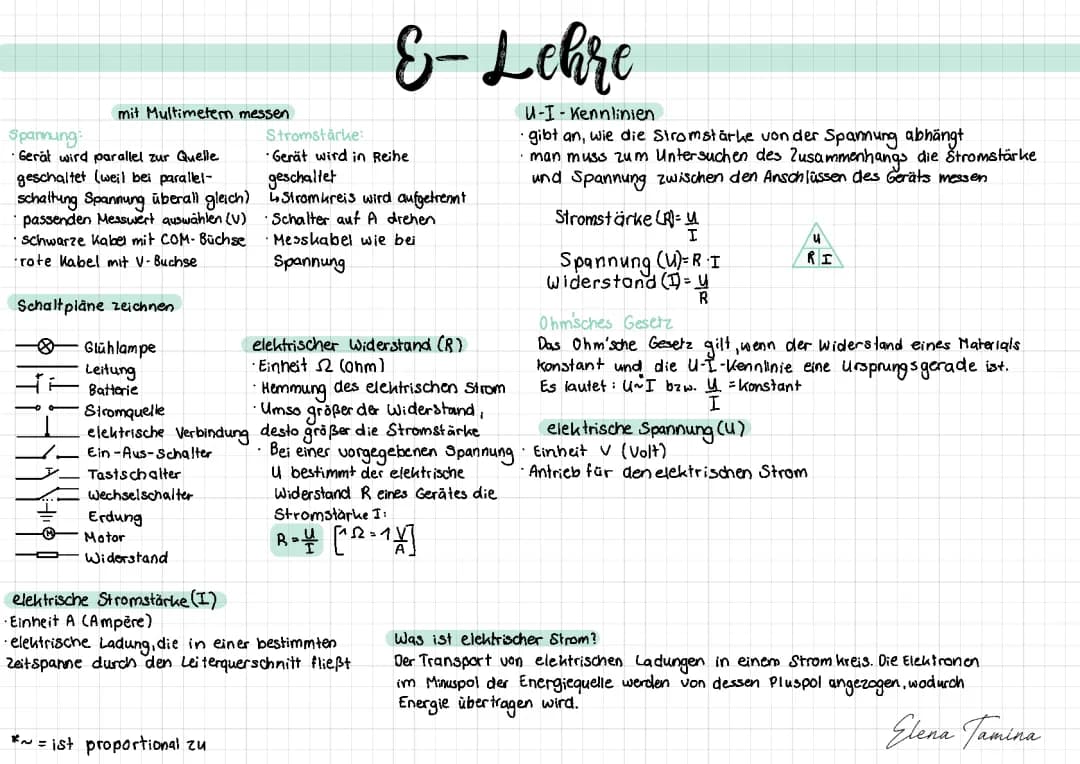 E-Lehre
mit Multimetern messen
Spannung:
· Gerät wird parallel zur Quelle
geschaltet (weil bei parallel-
schaltung Spannung überall gleich)
· passenden Messwert auswählen (V)
· schwarze Kabel mit COM-Buchse
· rote Kabel mit V-Buchse
Stromstärke:
· Gerät wird in Reihe
geschaltet
↳ Stromkreis wird aufgetrennt
· Schalter auf A drehen
· Messkabel wie bei
Spannung
Schaltpläne zeichnen
Glühlampe
Leitung
Batterie
Stromquelle
elektrische Verbindung
Ein-Aus-Schalter
Tastschalter
Wechselschalter
Erdung
M
Motor
Widerstand
elektrischer Widerstand (R)
· Einheit Ω (Ohm)
· Hemmung des elektrischen Strom
· Umso größer der Widerstand,
desto größer die Stromstärke
· Bei einer vorgegebenen Spannung
U bestimmt der elektrische
Widerstand R eines Gerätes die
Stromstärke I:
R = U/I [1Ω = 1 V/A]
elektrische Stromstärke (I)
· Einheit A (Ampère)
· elektrische Ladung, die in einer bestimmten
Zeitspanne durch den Leiterquerschnitt fließt
*~ = ist proportional zu
U-I-Kennlinien
· gibt an, wie die Stromstärke von der Spannung abhängt
· man muss zum Untersuchen des Zusammenhangs die Stromstärke
und Spannung zwischen den Anschlüssen des Geräts messen
Stromstärke (R) = U/I
Spannung (U) = R · I
Widerstand (I) = U/R
U
R I
Ohm'sches Gesetz
Das Ohm'sche Gesetz gilt, wenn der Widerstand eines Materials
konstant und die U-I-Kennlinie eine Ursprungsgerade ist.
Es lautet: U~I bzw. U/I = konstant
elektrische Spannung (U)
· Einheit V (Volt)
· Antrieb für den elektrischen Strom
Was ist elektrischer Strom?
Der Transport von elektrischen Ladungen in einem Stromkreis. Die Elektronen
im Minuspol der Energiequelle werden von dessen Pluspol angezogen, wodurch
Energie übertragen wird.
Elena Tamina